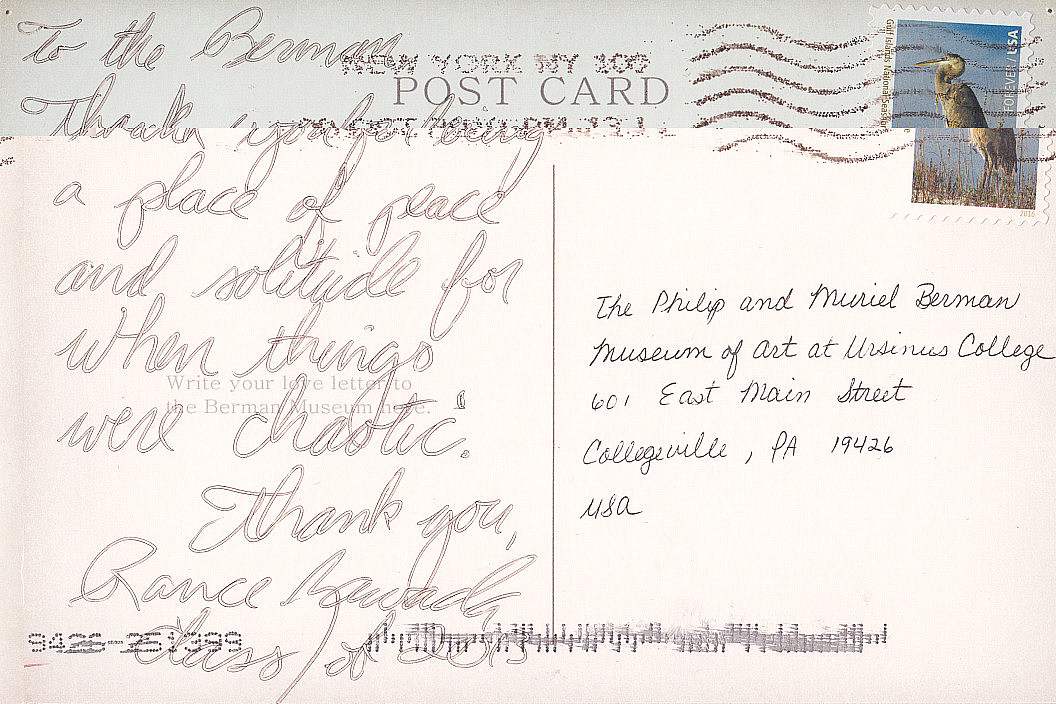 To the Berman
NEW YORK NY 100
POST CARD
Thank you for being
a place of peace
and solitude for
when things
Write your love letter to
the Berman Museum here.
were chaotic.
Thank you,
Rance
Class of 2013
Gulf Islands National Seashore
FOREVER / USA
2016
The Philip and Muriel Berman
Museum of Art at Ursinus College
601 East Main Street
Collegeville, PA 19426
USA